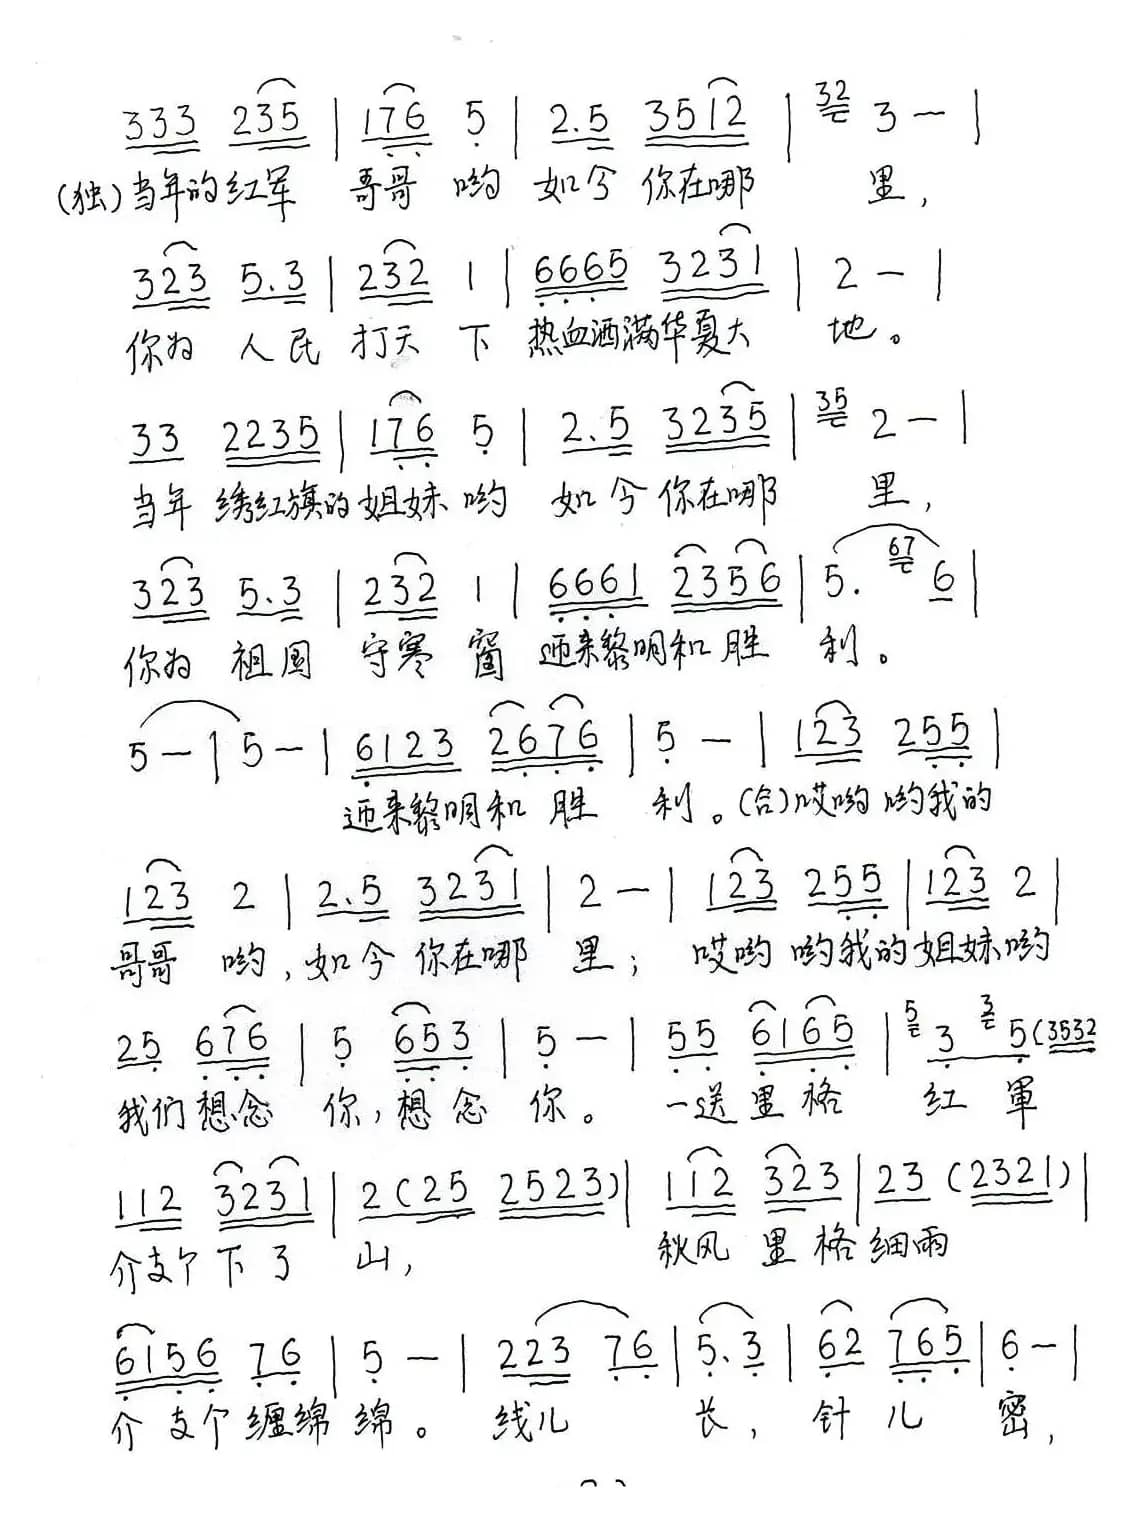 333 235 | 176 5 | 2.5 3512 | 32 3 — |
(独)当年的红军 哥哥 哟 如今 你在哪 里,
323 5.3 | 232 1 | 6665 3231 | 2 — |
你为 人民 打天 下 热血洒满华夏大 地。
33 2235 | 176 5 | 2.5 3235 | 35 2 — |
当年 绣红旗的姐妹 哟 如今 你在哪 里,
323 5.3 | 232 1 | 6661 2356 | 5. 67 6 |
你为 祖国 守寒 窗 迎来黎明和 胜 利。
5 — | 5 — | 6123 2676 | 5 — | 123 255 |
迎来黎明和 胜 利。(合)哎哟 哟我的
123 2 | 2.5 3231 | 2 — | 123 255 | 123 2 |
哥哥 哟,如今 你在哪 里; 哎哟 哟我的 姐妹哟
25 676 | 5 653 | 5 — | 55 6165 | 5 3 3 5 (3532
我们 想念 你,想念 你。 一送 里 格 红 軍
112 3231 | 2 (25 2523) | 112 323 | 23 (2321) |
介支个 下 了 山, 秋风 里 格 细雨
6156 76 | 5 — | 223 76 | 5.3 | 62 765 | 6 — |
介 支个 缠绵 绵。 线儿 长, 针 儿 密,